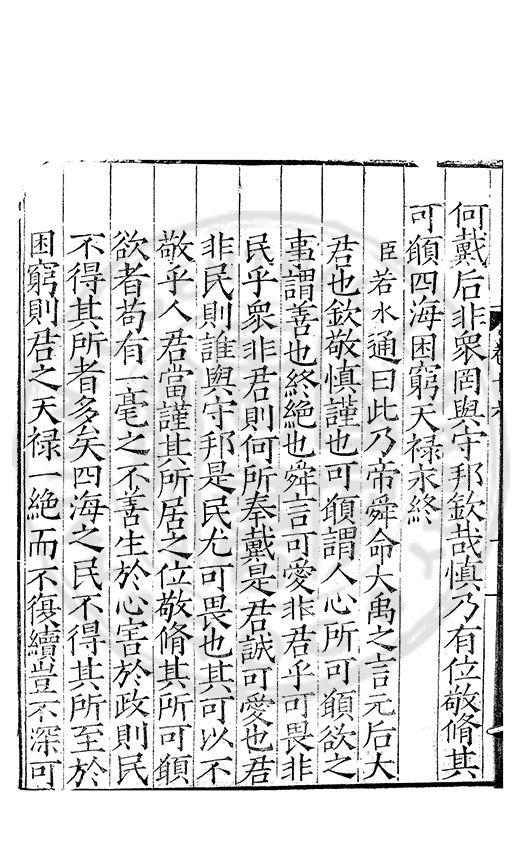 何戴后非衆罔與守邦欽哉慎乃有位敬脩其
可願四海困窮天禄永終
臣若水通曰此乃帝舜命大禹之言元后大
君也欽敬慎謹也可願謂人心所可願欲之
事謂善也終絶也舜言可愛非君乎可畏非
民乎衆非君則何所奉戴是君誠可愛也君
非民則誰與守邦是民尤可畏也其可以不
敬乎人君當謹其所居之位敬脩其所可願
欲者苟有一毫之不善生於心害於政則民
不得其所者多矣四海之民不得其所至於
困窮則君之天禄一絶而不復續豈不深可